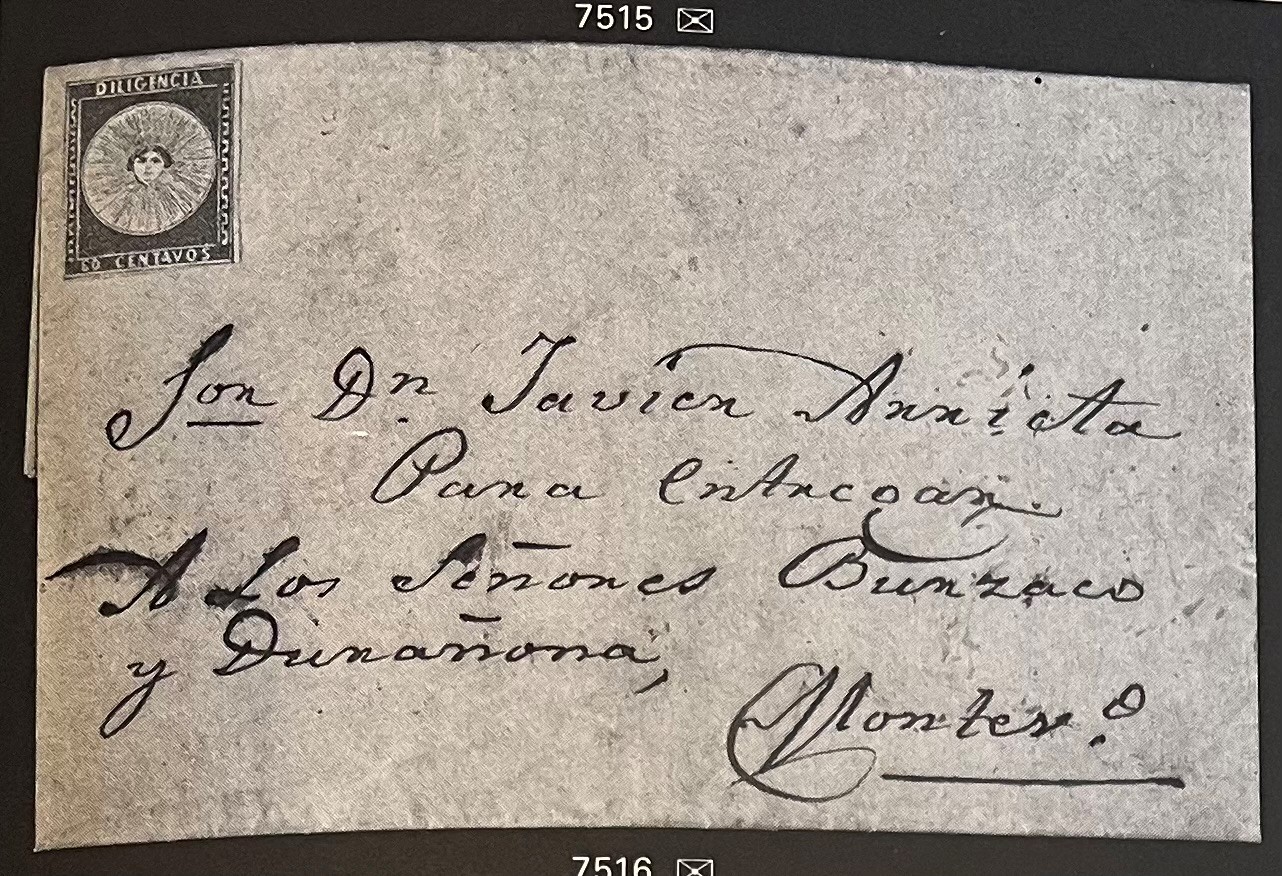 7515
DILIGENCIA
60 CENTAVOS
Sor Dn. Javier Arrieta
Para Entregar.
A Los Señores Burzaco
y Durañona,
Montev.o
7516